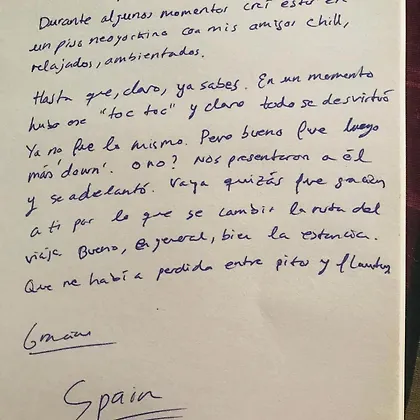 Durante algunos momentos creí estar en
un piso neoyorkino con mis amigos chill,
relajados, ambientados.
Hasta que, claro, ya sabes. En un momento
hubo ese "toc toc" y claro todo se desvirtuó
Ya no fue lo mismo. Pero bueno fue luego
más 'down'. O no? Nos presentaron a él
y se adelantó. Vaya quizás fue gracias
a ti por lo que se cambió la ruta del
viaje Bueno, en general, bien la estancia.
Que me había perdida entre pitos y flautas
Gracias
Spain